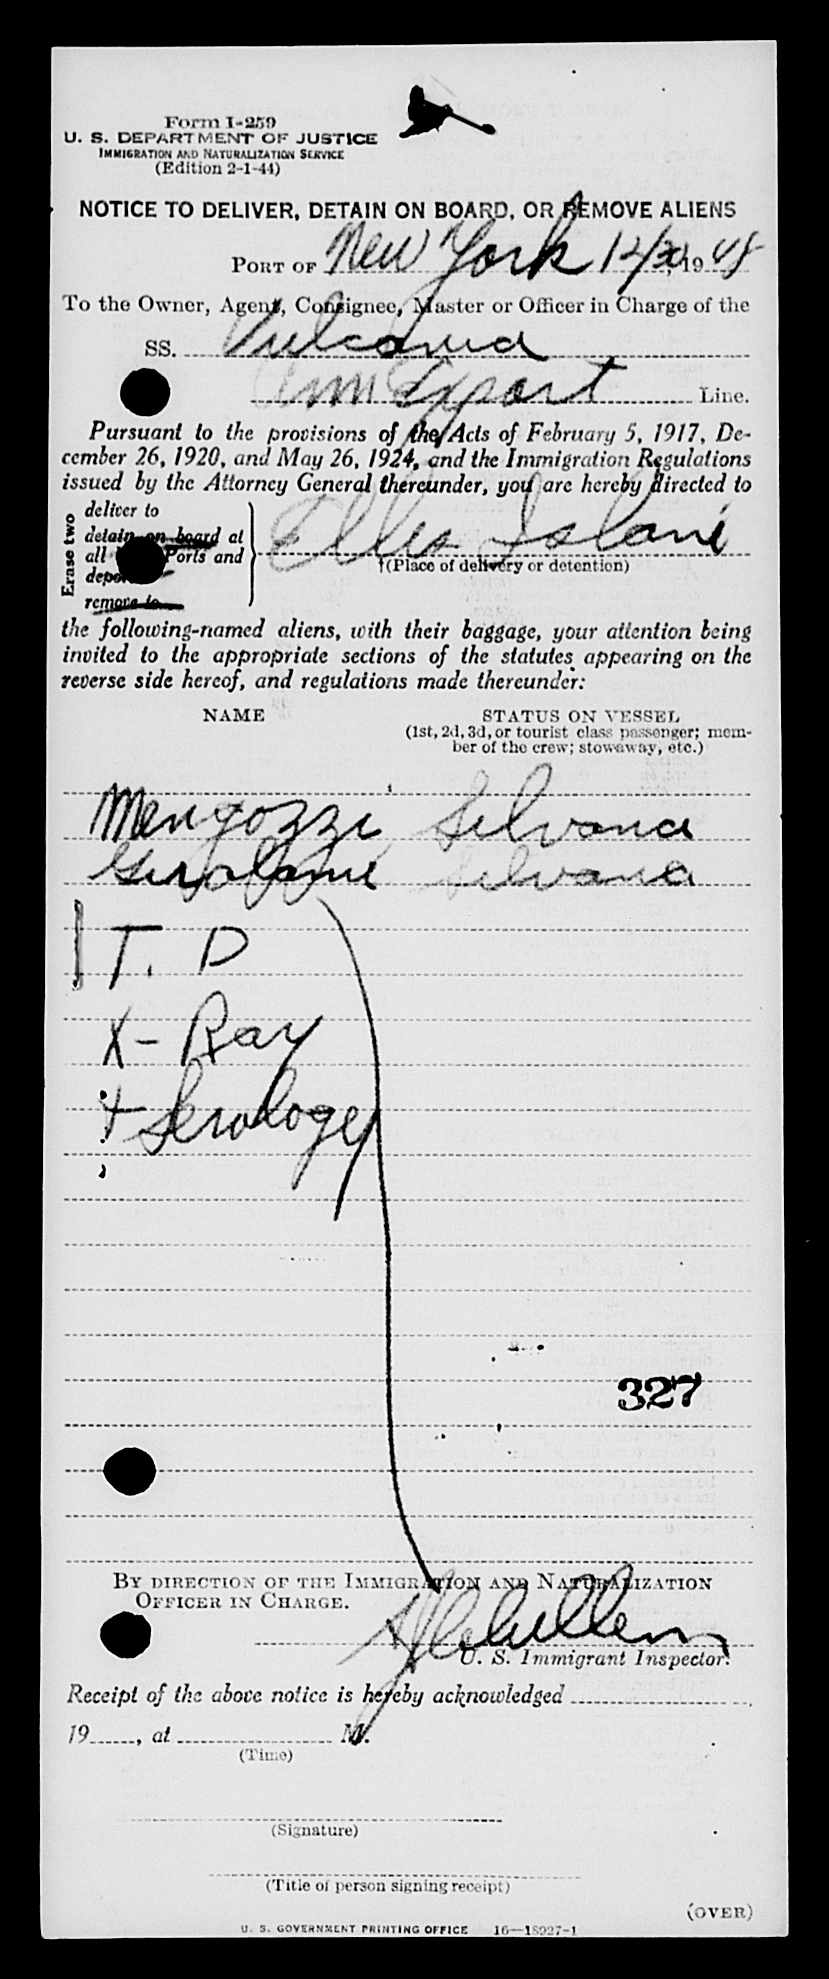 Form I-259
U. S. DEPARTMENT OF JUSTICE
IMMIGRATION AND NATURALIZATION SERVICE
(Edition 2-1-44)
NOTICE TO DELIVER, DETAIN ON BOARD, OR REMOVE ALIENS
PORT OF New York 12/ , 19 48
To the Owner, Agent, Consignee, Master or Officer in Charge of the
SS. Vulcania
Am Export Line.
Pursuant to the provisions of the Acts of February 5, 1917, De-
cember 26, 1920, and May 26, 1924, and the Immigration Regulations
issued by the Attorney General thereunder, you are hereby directed to
Erase two
deliver to
detain on board at
all Ports and
remove to
Ellis Island
†(Place of delivery or detention)
the following-named aliens, with their baggage, your attention being
invited to the appropriate sections of the statutes appearing on the
reverse side hereof, and regulations made thereunder:
NAME STATUS ON VESSEL
(1st, 2d, 3d, or tourist class passenger; mem-
ber of the crew; stowaway, etc.)
Mengozzi Silvana
Silvana
T. D
X-Ray
+ Serology
327
BY DIRECTION OF THE IMMIGRATION AND NATURALIZATION
OFFICER IN CHARGE.
U. S. Immigrant Inspector.
Receipt of the above notice is hereby acknowledged
19 , at M.
(Time)
(Signature)
(Title of person signing receipt)
(OVER)
U. S. GOVERNMENT PRINTING OFFICE 16—18927-1